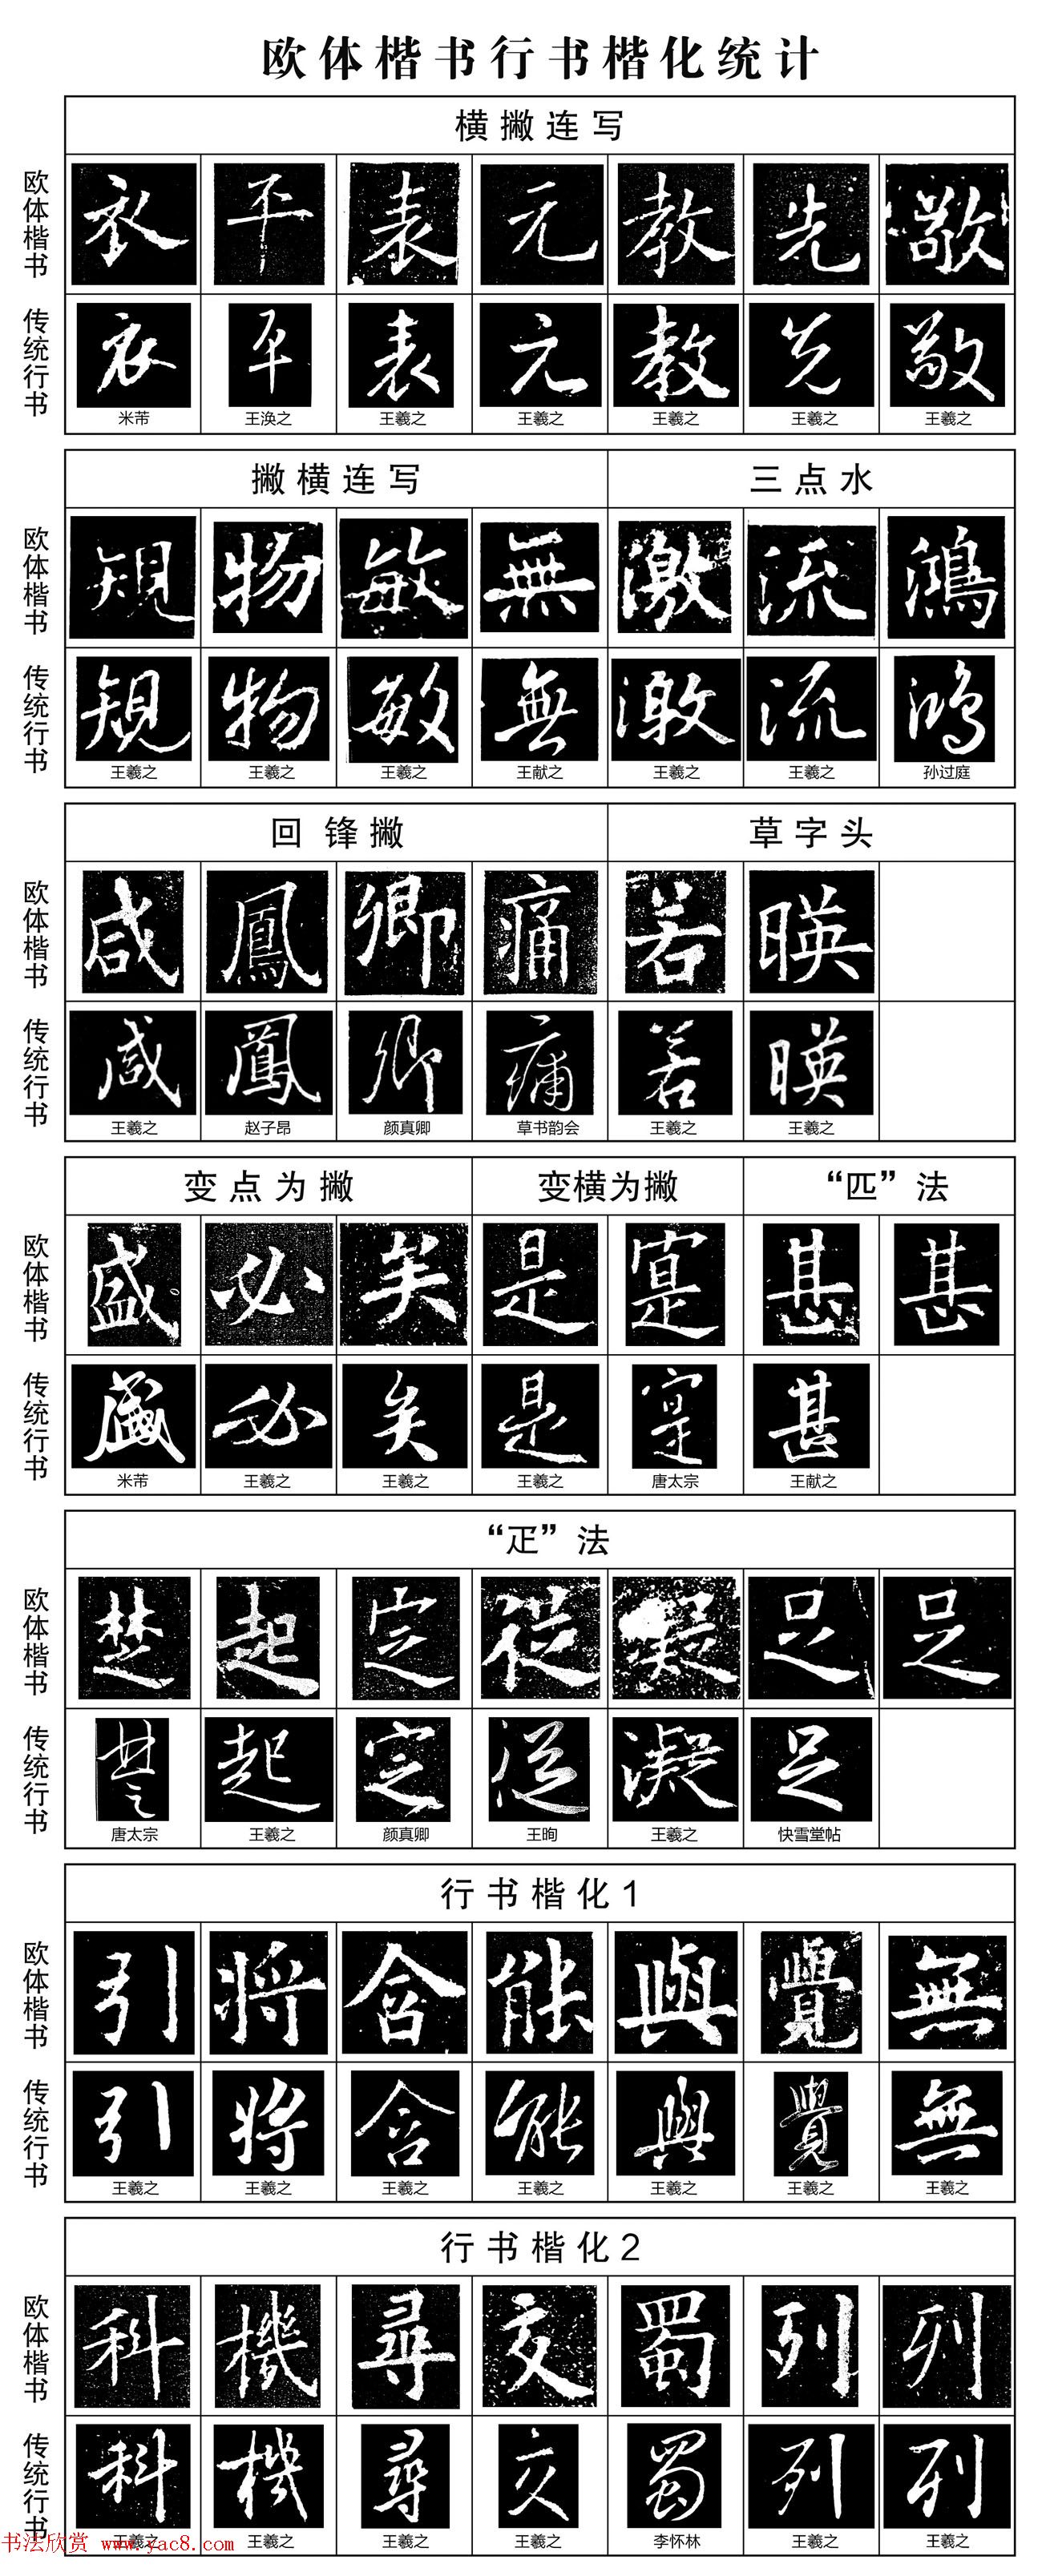 欧体楷书行书楷化统计
横撇连写
欧体楷书
衣 平 表 元 教 先 敬
传统行书
衣 平 表 元 教 先 敬
米芾 王涣之 王羲之 王羲之 王羲之 王羲之 王羲之
撇横连写 三点水
欧体楷书
規 物 敏 無 激 流 鴻
传统行书
規 物 敏 無 激 流 鴻
王羲之 王羲之 王羲之 王献之 王羲之 王羲之 孙过庭
回锋撇 草字头
欧体楷书
咸 鳳 卿 痛 若 暎
传统行书
咸 鳳 卿 痛 若 暎
王羲之 赵子昂 颜真卿 草书韵会 王羲之 王羲之
变点为撇 变横为撇 “匹”法
欧体楷书
盛 必 矣 是 寔 甚 甚
传统行书
盛 必 矣 是 寔 甚
米芾 王羲之 王羲之 王羲之 唐太宗 王献之
“疋”法
欧体楷书
楚 起 定 從 凝 足 足
传统行书
楚 起 定 從 凝 足
唐太宗 王羲之 颜真卿 王珣 王羲之 快雪堂帖
行书楷化1
欧体楷书
引 将 含 能 與 覺 無
传统行书
引 将 含 能 與 覺 無
王羲之 王羲之 王羲之 王羲之 王羲之 王羲之 王羲之
行书楷化2
欧体楷书
科 機 尋 交 蜀 列 列
传统行书
科 機 尋 交 蜀 列 列
王羲之 王羲之 王羲之 王羲之 李怀林 王羲之 王羲之
书法欣赏 www.yac8.com